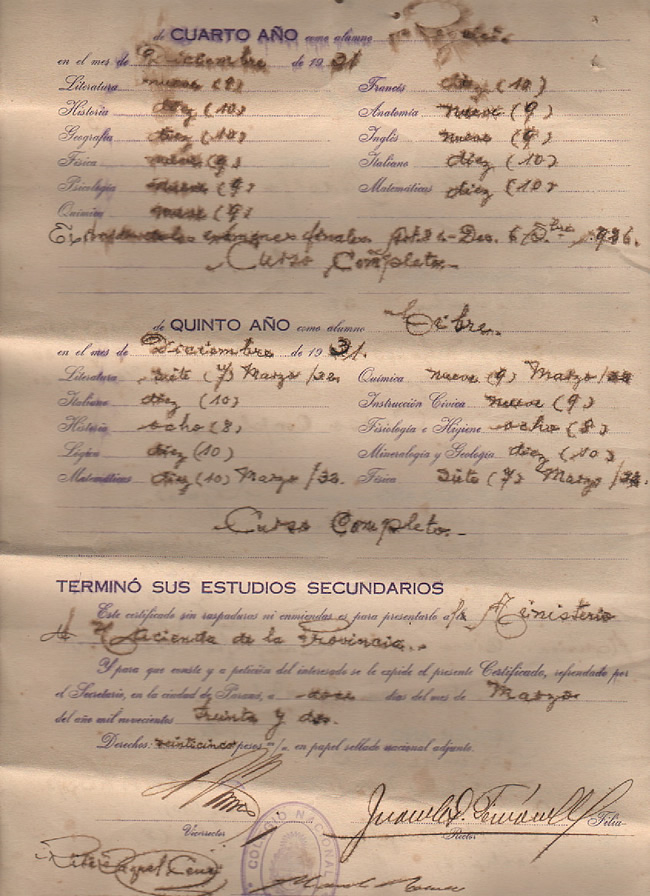 de CUARTO AÑO como alumno
en el mes de Diciembre de 19 31
Literatura nueve (8) Francés diez (10)
Historia diez (10) Anatomía nueve (9)
Geografía diez (10) Inglés nueve (9)
Física nueve (9) Italiano diez (10)
Psicología nueve (9) Matemáticas diez (10)
Química nueve (9)
exámenes finales.
Curso Completo.-
de QUINTO AÑO como alumno Libre.
en el mes de Diciembre de 19 31.
Literatura siete (7) Marzo /32 Química nueve (9) Marzo /32
Italiano diez (10) Instrucción Cívica nueve (9)
Historia ocho (8) Fisiología e Higiene ocho (8)
Lógica diez (10) Mineralogía y Geología diez (10)
Matemáticas diez (10) Marzo /32. Física siete (7) Marzo /32
Curso Completo.-
TERMINÓ SUS ESTUDIOS SECUNDARIOS
Este certificado sin raspaduras ni enmiendas es para presentarlo a/l Ministerio
de Hacienda de la Provincia.-
Y para que conste y a petición del interesado se le expide el presente Certificado, refrendado por
el Secretario, en la ciudad de Paraná, a doce días del mes de Marzo
del año mil novecientos treinta y dos.
Derechos: veinticinco pesos m/n. en papel sellado nacional adjunto.
Vicerrector Rector
COLEGIO NACIONAL